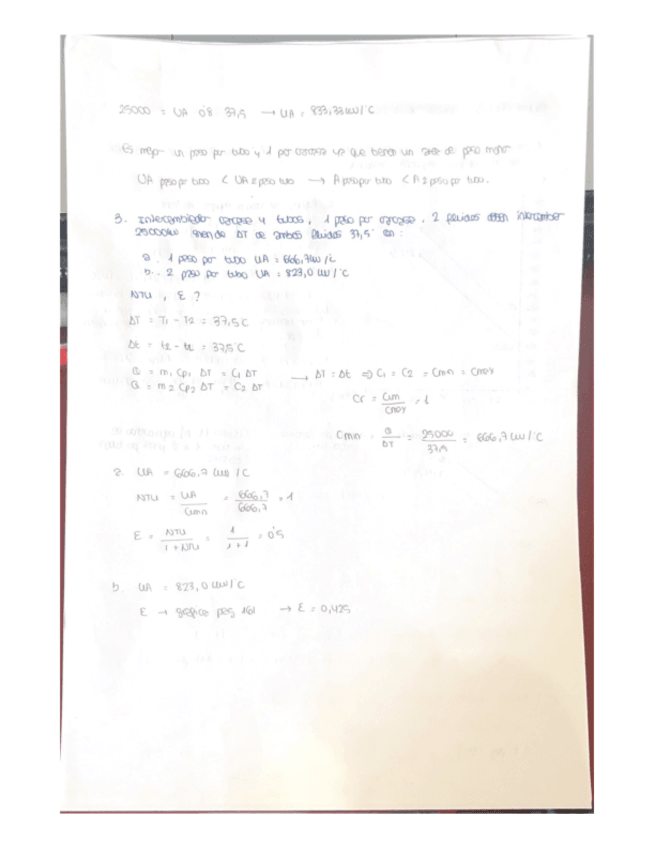 25000 = UA 0'8 37,5 → UA = 833,33 kW/°C
Es mejor un paso por tubo y 1 por carcasa ya que tienen un area de paso menor
UA paso por tubo < UA 2 paso tubo → A paso por tubo < A 2 paso por tubo.
3. Intercambiador carcasa y tubos, 1 paso por carcasa. 2 fluidos intercambiar
25000 kW siendo ΔT de ambos fluidos 37,5° en:
a. 1 paso por tubo UA = 666,7 kW/°C
b. 2 paso por tubo UA = 823,0 kW/°C
NTU, E ?
ΔT = T1 - T2 = 37,5°C
Δt = t2 - t1 = 37,5°C
Q = m1 Cp1 ΔT = C1 ΔT → ΔT = Δt => C1 = C2 = Cmin = Cmax
Q = m2 Cp2 ΔT = C2 ΔT
Cr = Cmin / Cmax = 1
Cmin = Q / ΔT = 25000 / 37,5 = 666,7 kW/°C
a. UA = 666,7 kW/°C
NTU = UA / Cmin = 666,7 / 666,7 = 1
E = NTU / 1 + NTU = 1 / 1+1 = 0'5
b. UA = 823,0 kW/°C
E → gráfica pag 161 → E = 0,425